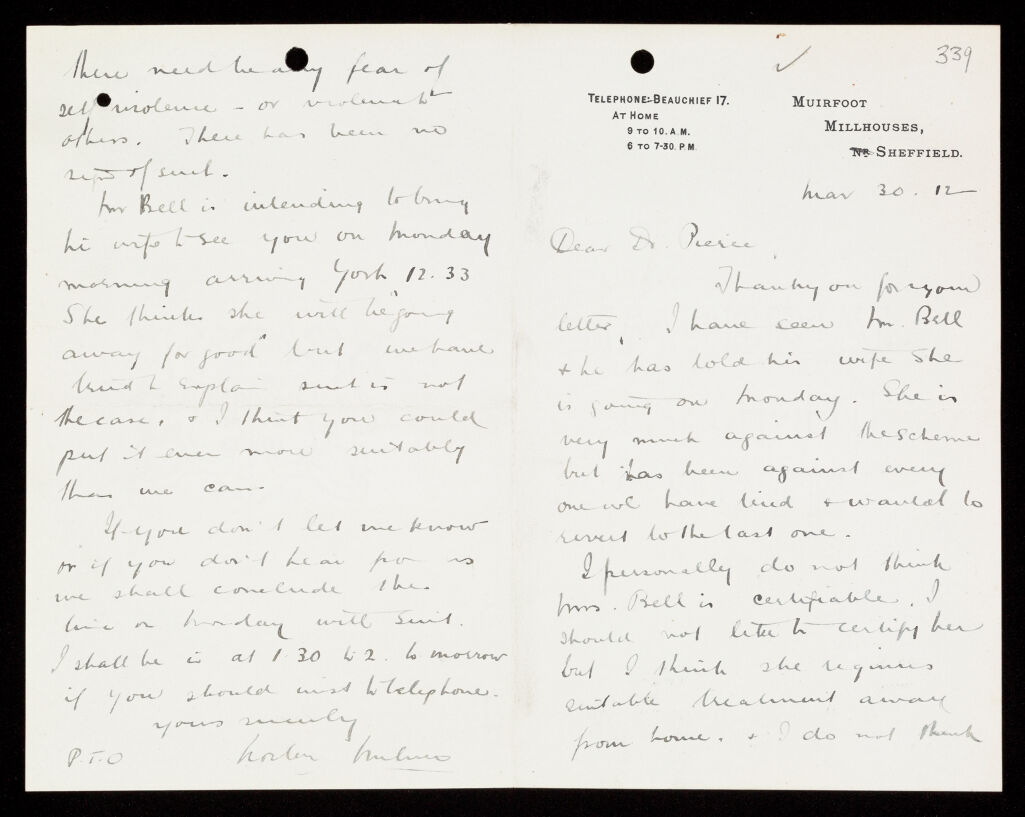 339
TELEPHONE:-BEAUCHIEF 17.
AT HOME
9 TO 10. A.M.
6 TO 7-30. P.M.
MUIRFOOT
MILLHOUSES,
NR SHEFFIELD.
Mar 30. 12
Dear Dr. Pierce,
Thank you for your
letter, I have seen Mr. Bell
& he has told his wife she
is going on Monday. She is
very much against the scheme
but has been against every
one we have tried & wanted to
revert to the last one.
I personally do not think
Mrs. Bell is certifiable. I
should not like to certify her
but I think she requires
suitable treatment away
from home. & I do not think
there need be any fear of
self violence - or violence to
others. There has been no
sign of such.
Mr Bell is intending to bring
his wife to see you on Monday
morning arriving York 12.33
She thinks she will be "going
away for good" but we have
tried to explain such is not
the case, & I think you could
put it even more suitably
than we can.
If you don't let me know
or if you don't hear from us
we shall conclude the
time on Monday will suit.
I shall be in at 1.30 to 2. tomorrow
if you should wish to telephone.
Yours sincerely
P.T.O